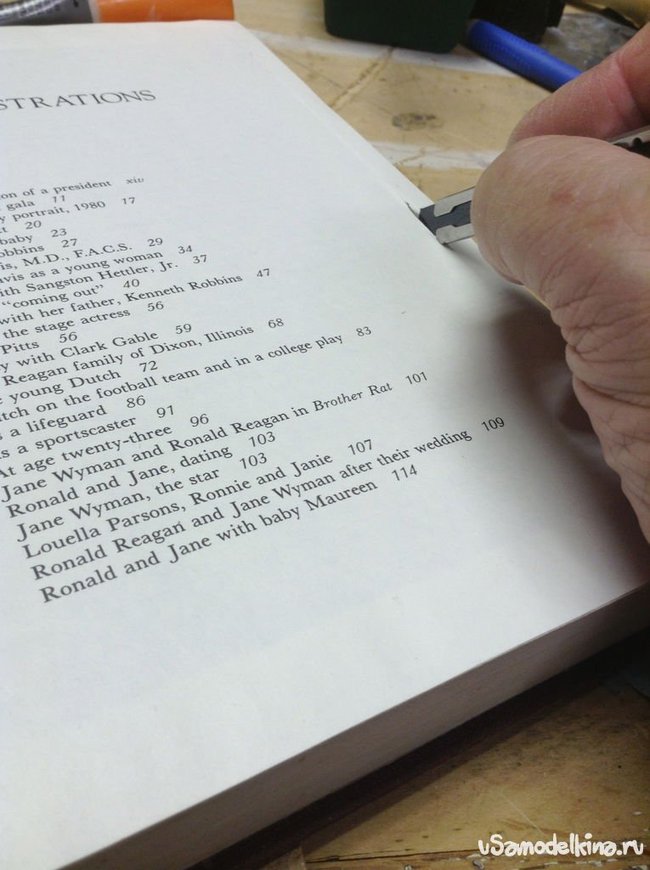 STRATIONS
on of a president xiv
gala 11
y portrait, 1980 17
20
baby 23
obbins 27
is, M.D., F.A.C.S. 29
vis as a young woman 34
ith Sangston Hettler, Jr. 37
"coming out" 40
with her father, Kenneth Robbins 47
the stage actress 56
Pitts 56
y with Clark Gable 59
Reagan family of Dixon, Illinois 68
young Dutch 72
tch on the football team and in a college play 83
s a lifeguard 86
s a sportscaster 91
At age twenty-three 96
Jane Wyman and Ronald Reagan in Brother Rat 101
Ronald and Jane, dating 103
Jane Wyman, the star 103
Louella Parsons, Ronnie and Janie 107
Ronald Reagan and Jane Wyman after their wedding 109
Ronald and Jane with baby Maureen 114
uSamodelkina.ru